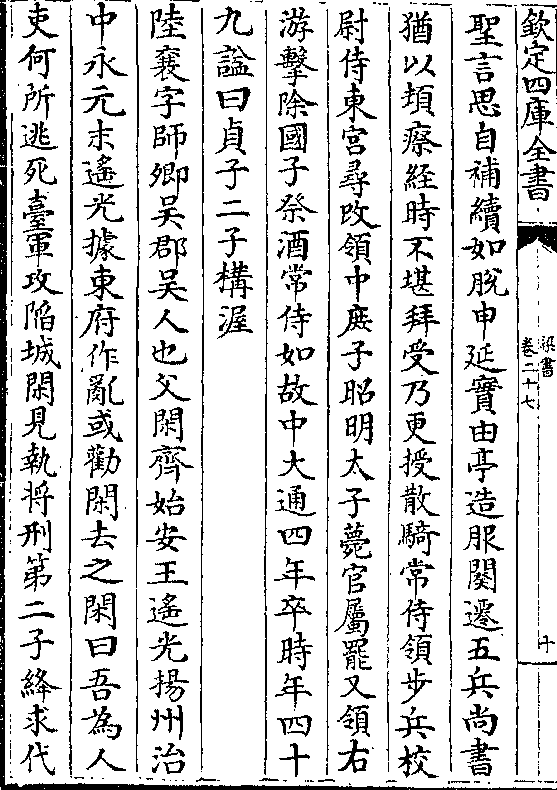 欽定四庫全書
梁書
卷二十七
十
聖言思自補續如脫申延實由亭造服闋遷五兵尚書
猶以頓瘵經時不堪拜受乃更授散騎常侍領步兵校
尉侍東宮尋改領中庶子昭明太子薨官屬罷又領右
游擊除國子祭酒常侍如故中大通四年卒時年四十
九謚曰貞子二子構渥
陸襄字師卿吳郡吳人也父閑齊始安王遙光揚州治
中永元末遙光據東府作亂或勸閑去之閑曰吾為人
吏何所逃死臺軍攻陷城閑見執將刑第二子絳求代